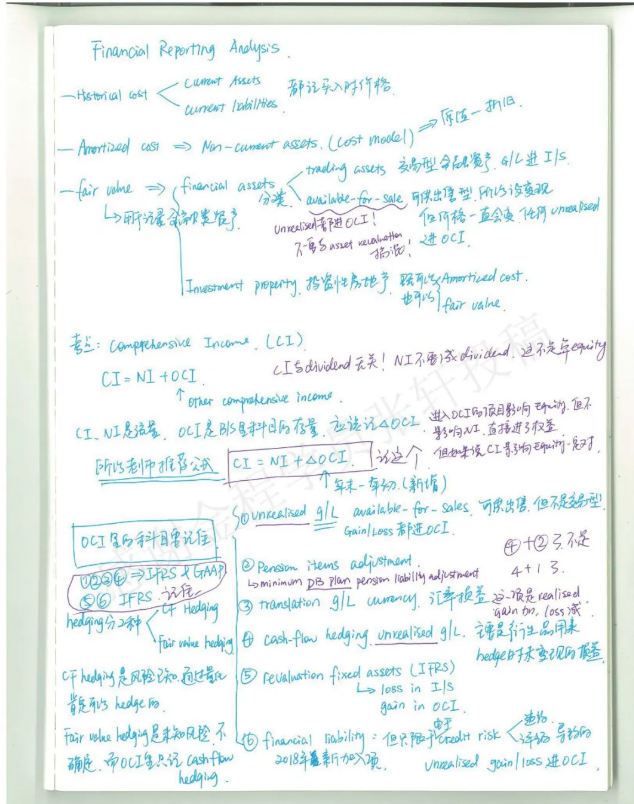 Financial Reporting Analysis.
— Historical cost
current Assets
current liabilities
都记买入时价格.
— Amortized cost ⇒ Non-current assets. (cost model) ⇒ 原值 - 折旧
— fair value ⇒ financial assets
分类
trading assets 交易型金融资产. G/L 进 I/S.
available-for-sale 可供出售型, 所以没变现
但价格一直会变 任何 unrealised
进 OCI.
unrealised 都进 OCI!
不要与 asset revaluation
搞混!
Investment property. 投资性房地产
Amortized cost.
也可以 fair value.
考点: Comprehensive Income. (CI)
CI与dividend无关! NI不要减dividend.
CI = NI + OCI
other comprehensive income.
CI、NI是流量. OCI是B/S里科目的存量. 应该记△OCI.
进入OCI的项目影响Equity. 但不
影响NI. 直接进了权益
所以老师推荐公式
CI = NI + △OCI.
记这个
年末 - 年初. (新增)
OCI里的科目要记住
①②③④ ⇒ IFRS & GAAP
⑤⑥ IFRS. 记住.
hedging分2种
CF Hedging
Fair value hedging
CF hedging是风险已知.
Fair value hedging是未知风险. 不
确定. 而OCI里只记 cash flow
hedging.
① unrealised g/L available-for-sales. 可供出售. 但不是交易型.
Gain/Loss 都进OCI.
② Pension items adjustment.
minimum DB plan pension liability adjustment
③ translation g/L currency. 汇率损益
④ cash-flow hedging unrealised g/L.
主要是衍生品用来
hedge的未变现的损益.
⑤ revaluation fixed assets (IFRS)
loss in I/S
gain in OCI.
⑥ financial liability: 但只限于 credit risk
2018年新加入项.
unrealised gain/loss 进OCI.